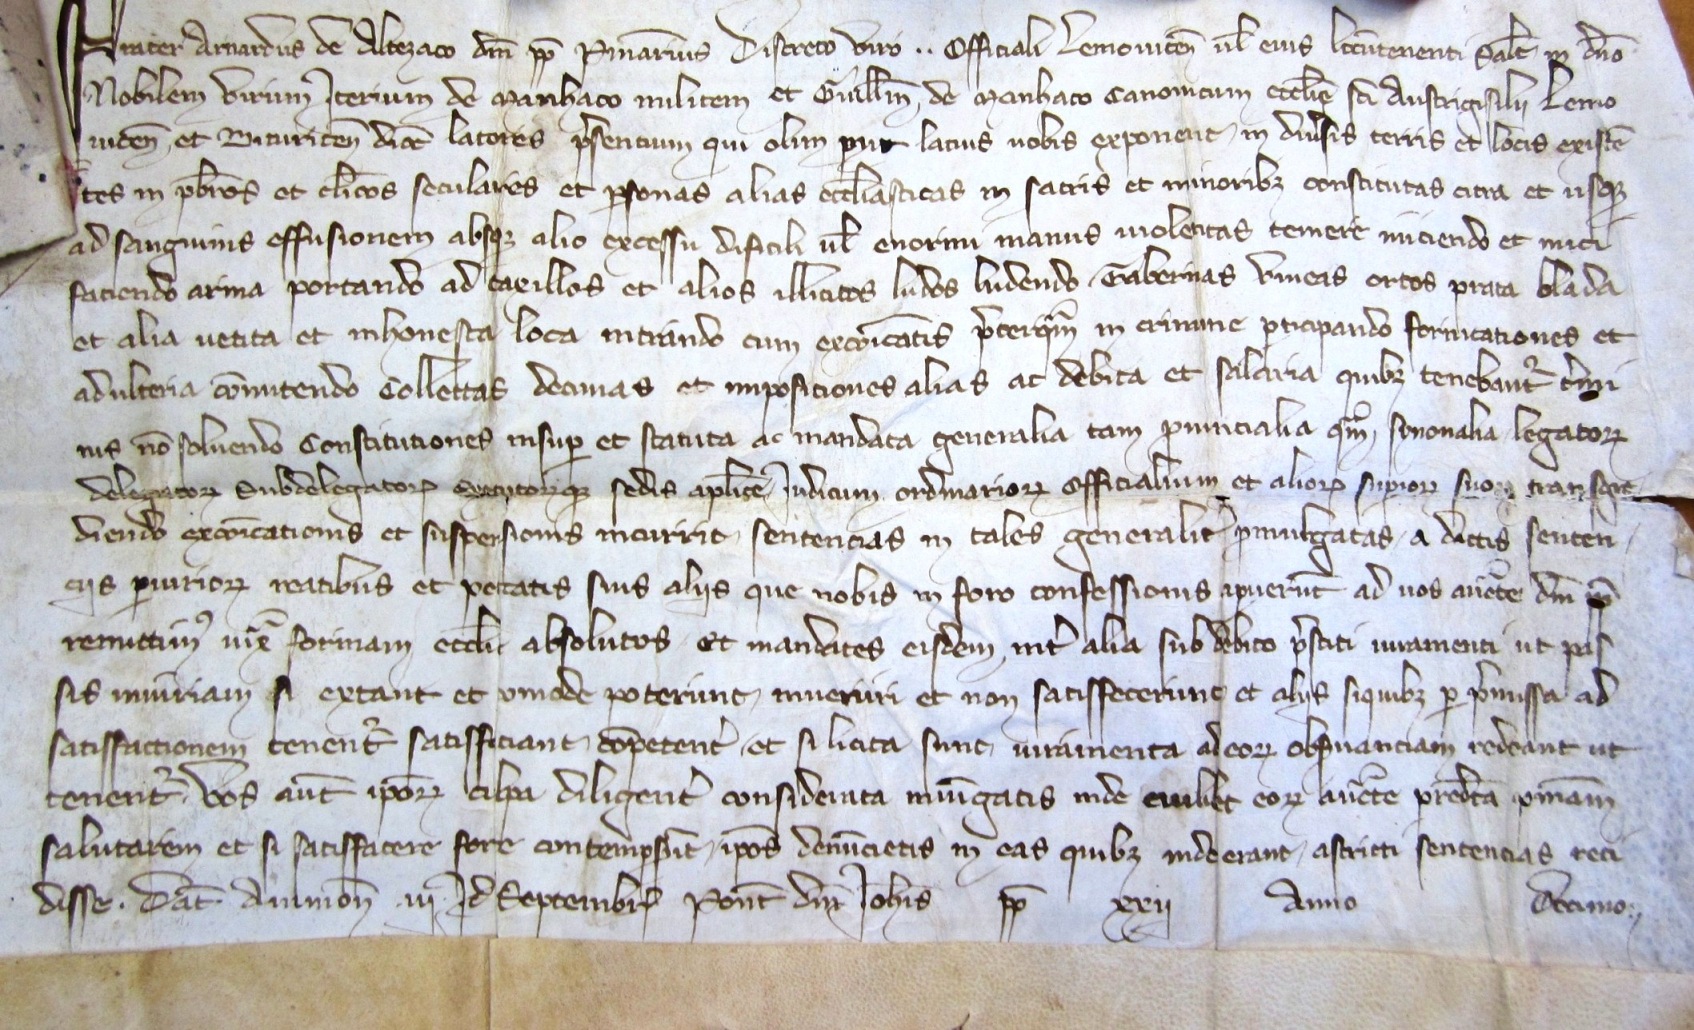 Frater Arnardus de Altezaco dni pp Pniarius Discreto viro .. Officiali Lemouicen ul eius locutenenti Salt in dno
Nobilem virum Iterium de Manhaco militem et Guillm de Manhaco Canonicum ecclie sci Austrigisilii Lemo
uicen et Bituricen dioc latores psentium qui olim put lacius uobis exponent in diuersis terris et locis existen
tes in pbros et clicos seculares et psonas alias eccliasticas in sacris et minoribz constitutas citra et usqz
ad sanguinis effusionem absqz alio excessu dificili ul enormi manus uiolentas temere iniciendo et inici
faciendo arma portando ad taxillos et alios illicitos ludos ludendo Tabernas vineas ortos prata blada
et alia uetita et inhonesta loca intrando cum excoicatis pterqm in crimine pticipando fornicationes et
adulteria comittendo Collectas decimas et imposiciones alias ac debita et salaria quibz tenebantr tmi
nis no soluendo Constitutiones insup et statuta ac mandata generalia tam prouincialia qm synonalia legatorz
delegatorz Subdelegatorz executorzqz sedis aplice Iudicum ordinariorz Officialium et aliorz superiorz suorz transgre
diendo excoicationis et suspensionis incurrit sentencias in tales generalit pmulgatas a dictis senten
ciis piuriorz reatibus et peccatis suis aliis que nobis in foro confessionis apuerunt ad uos aucte dni pp
remittim9 iux formam ecclie absolutos Et mandates eisdem int alia sub debito pstiti iuramenti ut pas
sis iniuriam si extant et comode poterunt inueniri et non satisfecerunt et aliis siquibz p pmissa ad
satisfactionem tenentr satisfaciant competent et si licita sunt iuramenta ad eorz obseruanciam redeant ut
tenentr Vos aut iporz culpa diligent considerata iniungatis inde cuilibet eorz aucte predcta pniam
salutarem et si satisfacere fore contempserit ipos denuncietis in eas quibz inde erant astricti sentencias reci
disse. Dat Auinion iij Id Septembr Pont dni Iohis pp xxij Anno Decimo